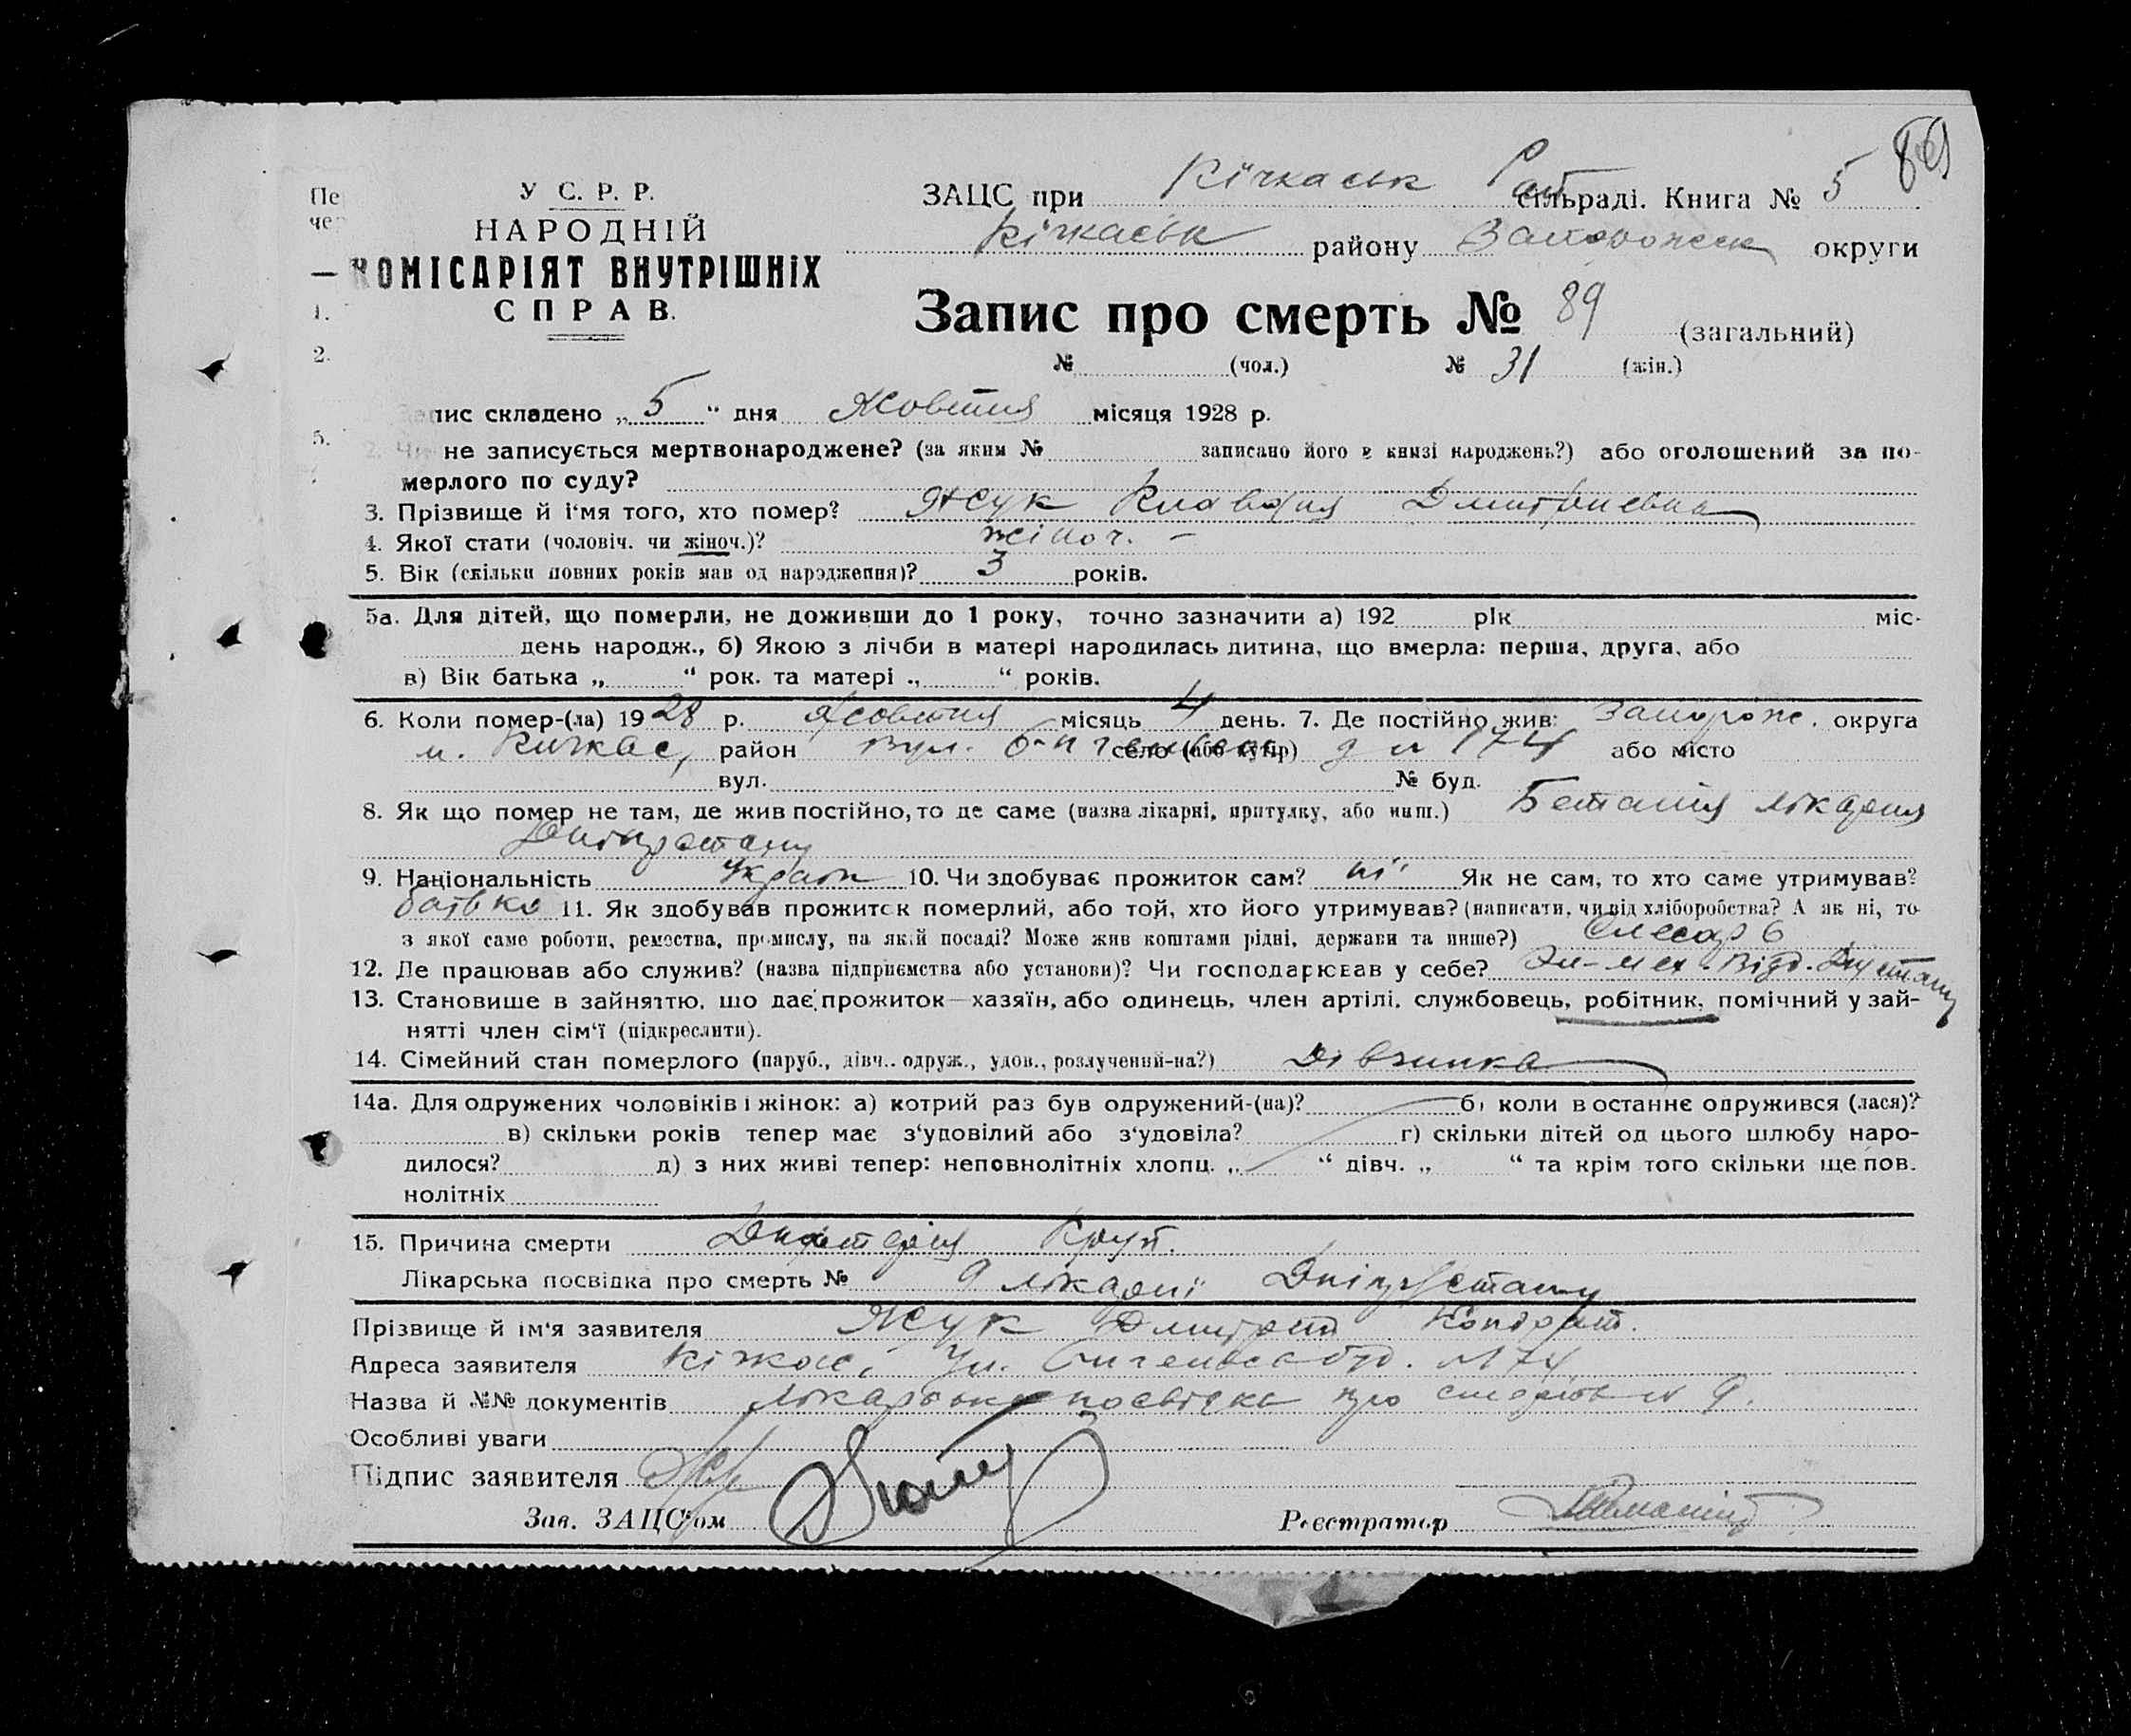 89
Пе
че
У С. Р. Р.
НАРОДНІЙ
КОМІСАРІЯТ ВНУТРІШНІХ
СПРАВ.
1.
2.
5.
ЗАЦС при Кічкаськ Рай сільраді. Книга № 5
Кічкаськ району Запорожськ округи
Запис про смерть № 89 (загальний)
№ (чол.) № 31 (жін.)
Запис складено „ 5 “ дня Жовтня місяця 1928 р.
2. Чи не записується мертвонароджене? (за яким № записано його в книзі народжень?) або оголошений за по-
мерлого по суду?
3. Прізвище й і'мя того, хто помер? Жук Клавдия Дмитриевна
4. Якої стати (чоловіч. чи жіноч.)? жіноч. –
5. Вік (скільки повних років мав од народження)? 3 років.
5а. Для дітей, що померли, не доживши до 1 року, точно зазначити а) 192 рік міс-
день народж., б) Якою з лічби в матері народилась дитина, що вмерла: перша, друга, або
в) Вік батька „ “ рок. та матері „ “ років.
6. Коли помер-(ла) 1928 р. Жовтня місяць 4 день. 7. Де постійно жив: Запоріж. округа
м. Кичкас, район вул. село (або хутір) або місто
вул. № буд.
8. Як що помер не там, де жив постійно, то де саме (назва лікарні, притулку, або инш.) Бетания лікарня
Дніпрастану
9. Національність Україн 10. Чи здобуває прожиток сам? ні Як не сам, то хто саме утримував?
батько 11. Як здобував прожиток померлий, або той, хто його утримував? (написати, чи від хліборобства? А як ні, то
з якої саме роботи, ремества, промислу, на якій посаді? Може жив коштами рідні, держави та инше?) Слесарь
12. Де працював або служив? (назва підприємства або установи)? Чи господарював у себе? Эл-мех. відд.
13. Становище в зайняттю, що дає прожиток—хазяїн, або одинець, член артілі, службовець, робітник, помічний у зай-
нятті член сім'ї (підкреслити).
14. Сімейний стан померлого (паруб., дівч.. одруж., удов., розлучений-на?) Дівчинка
14а. Для одружених чоловіків і жінок: а) котрий раз був одружений-(на)? б) коли востаннє одружився (лася)?
в) скільки років тепер має з'удовілий або з'удовіла? г) скільки дітей од цього шлюбу наро-
дилося? д) з них живі тепер: неповнолітніх хлопц. „ “ дівч. „ “ та крім того скільки ще пов.
нолітніх
15. Причина смерти Дифтерия Круп.
Лікарська посвідка про смерть № 9 лікарні Дніпрастану
Прізвище й ім'я заявителя Жук Дмитрий Кондрат.
Адреса заявителя Кічкас, Ул. буд. №74
Назва й №№ документів лікарська посвідка про смерть № 9.
Особливі уваги
Підпис заявителя
Зав. ЗАЦС'ом
Реєстратор